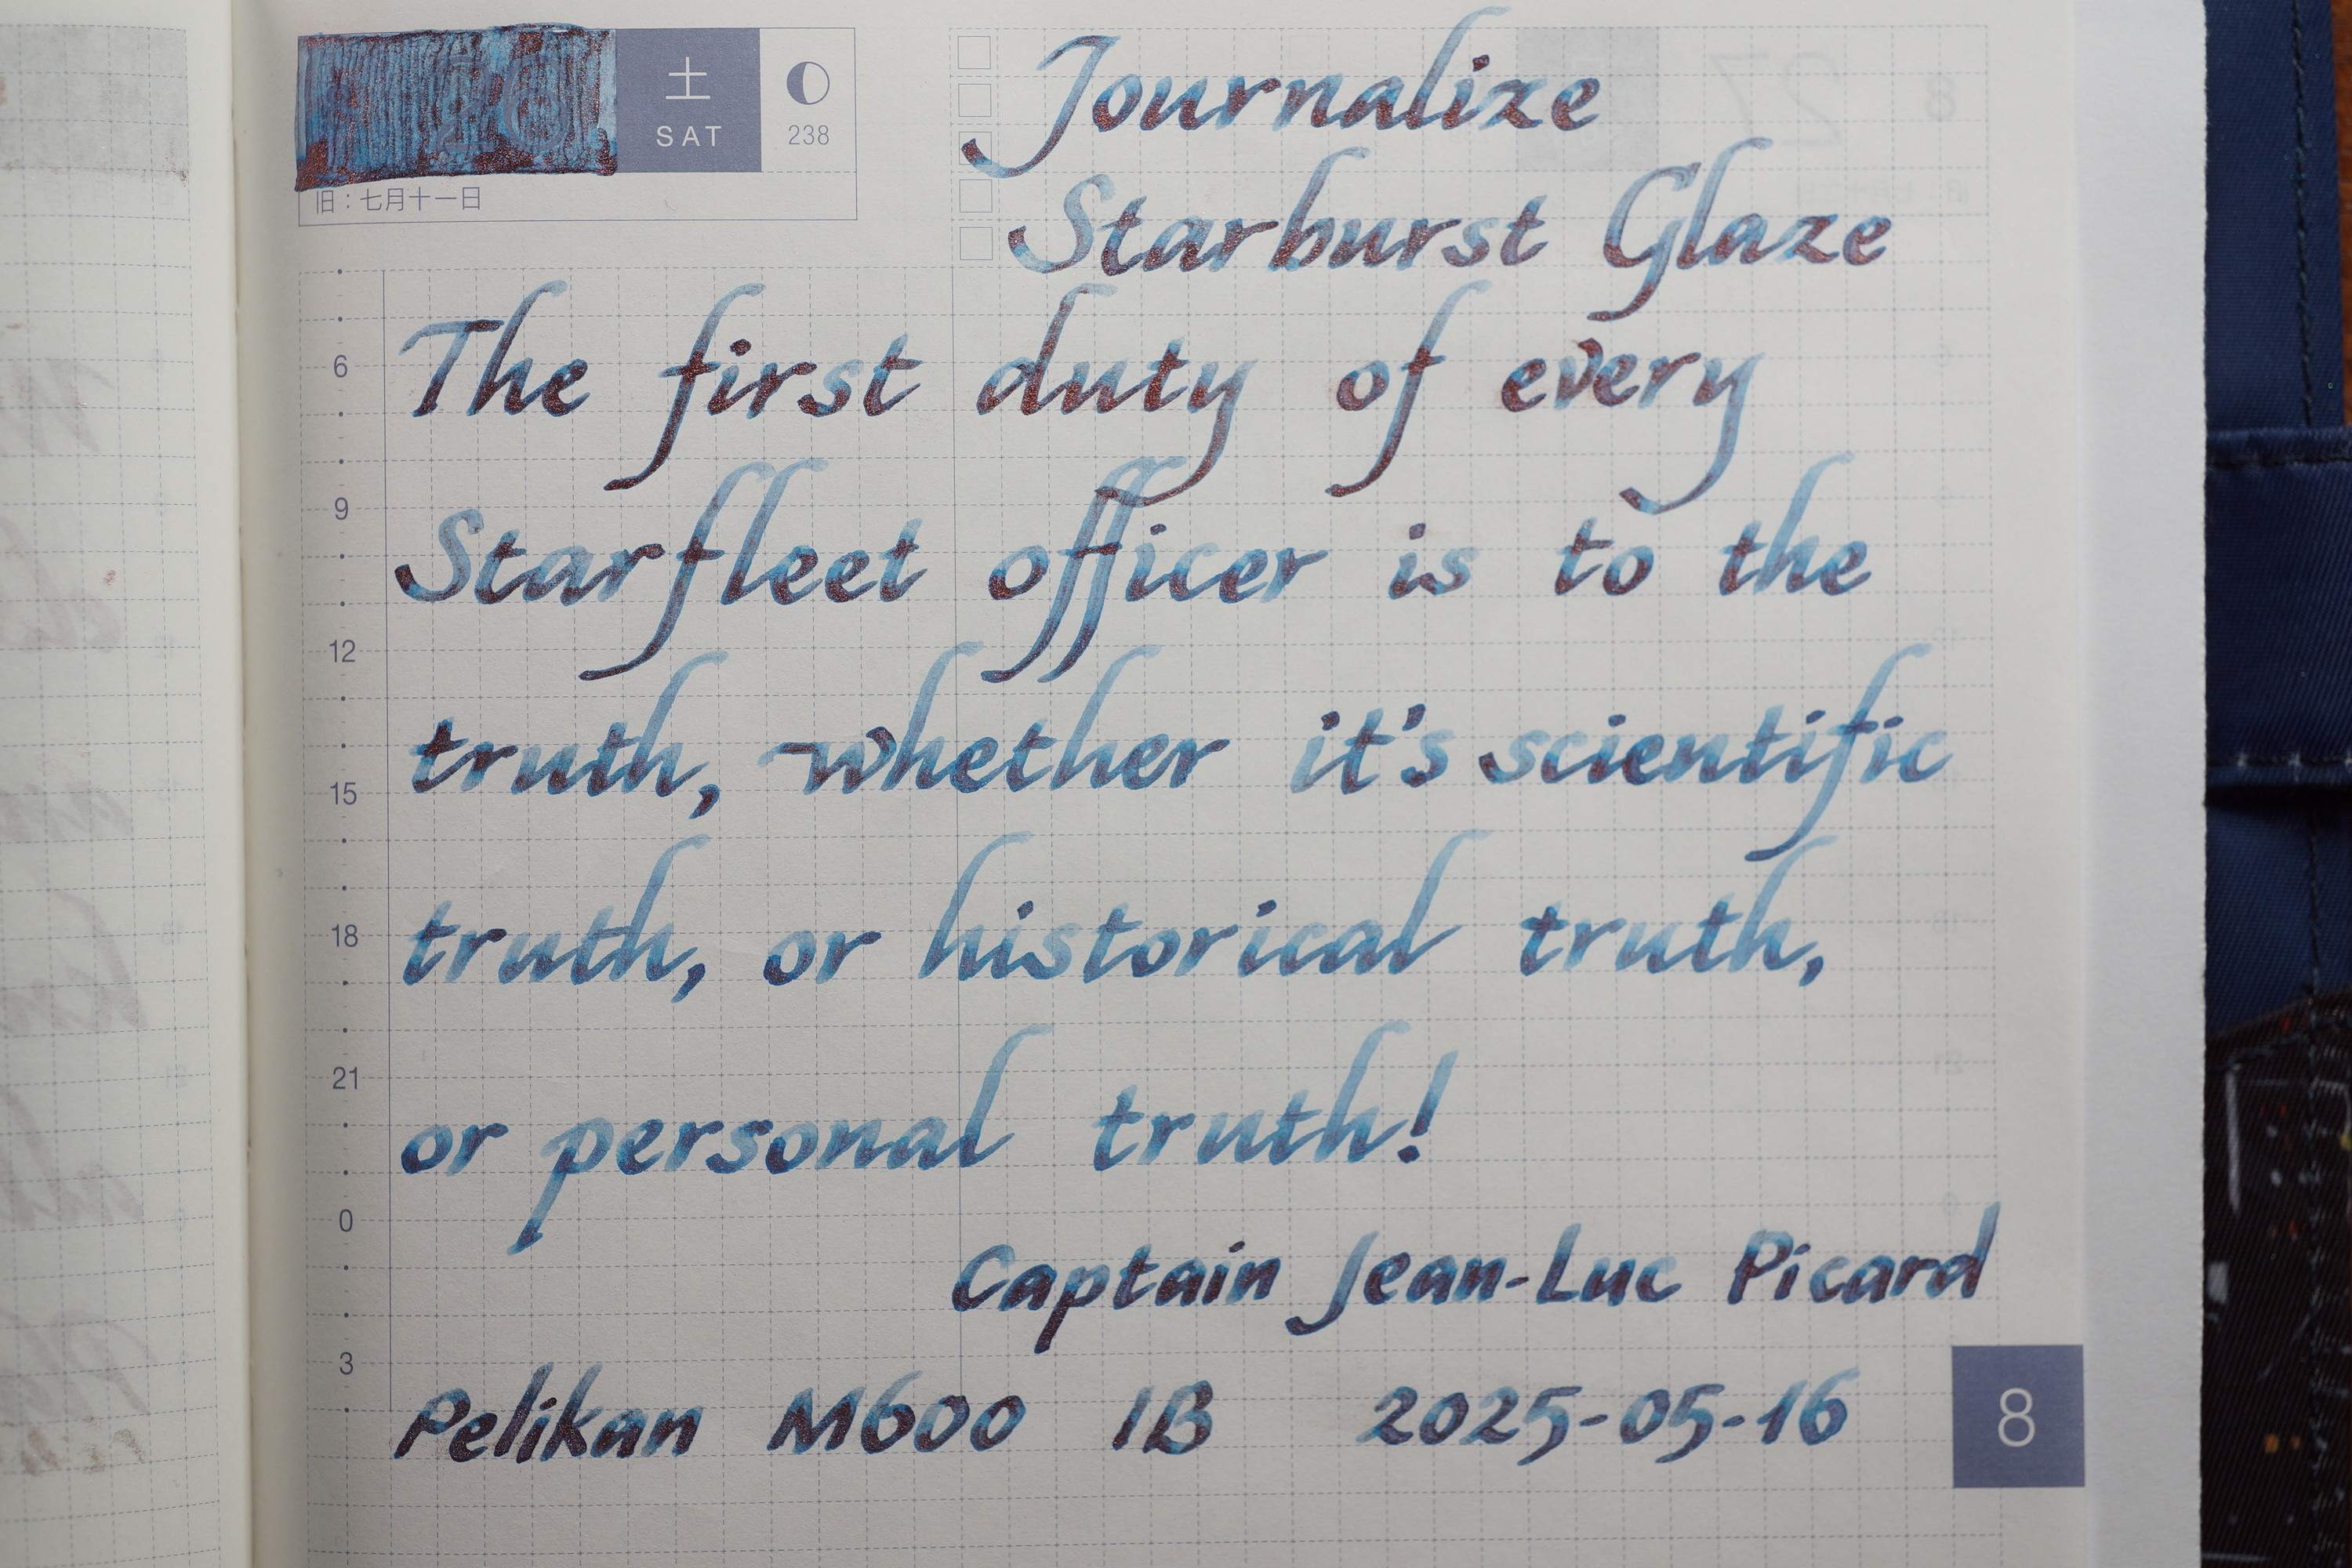 26
土
SAT
238
旧：七月十一日
Journalize
Starburst Glaze
The first duty of every
Starfleet officer is to the
truth, whether it's scientific
truth, or historical truth,
or personal truth!
Captain Jean-Luc Picard
Pelikan M600 IB 2025-05-16
6
9
12
15
18
21
0
3
8